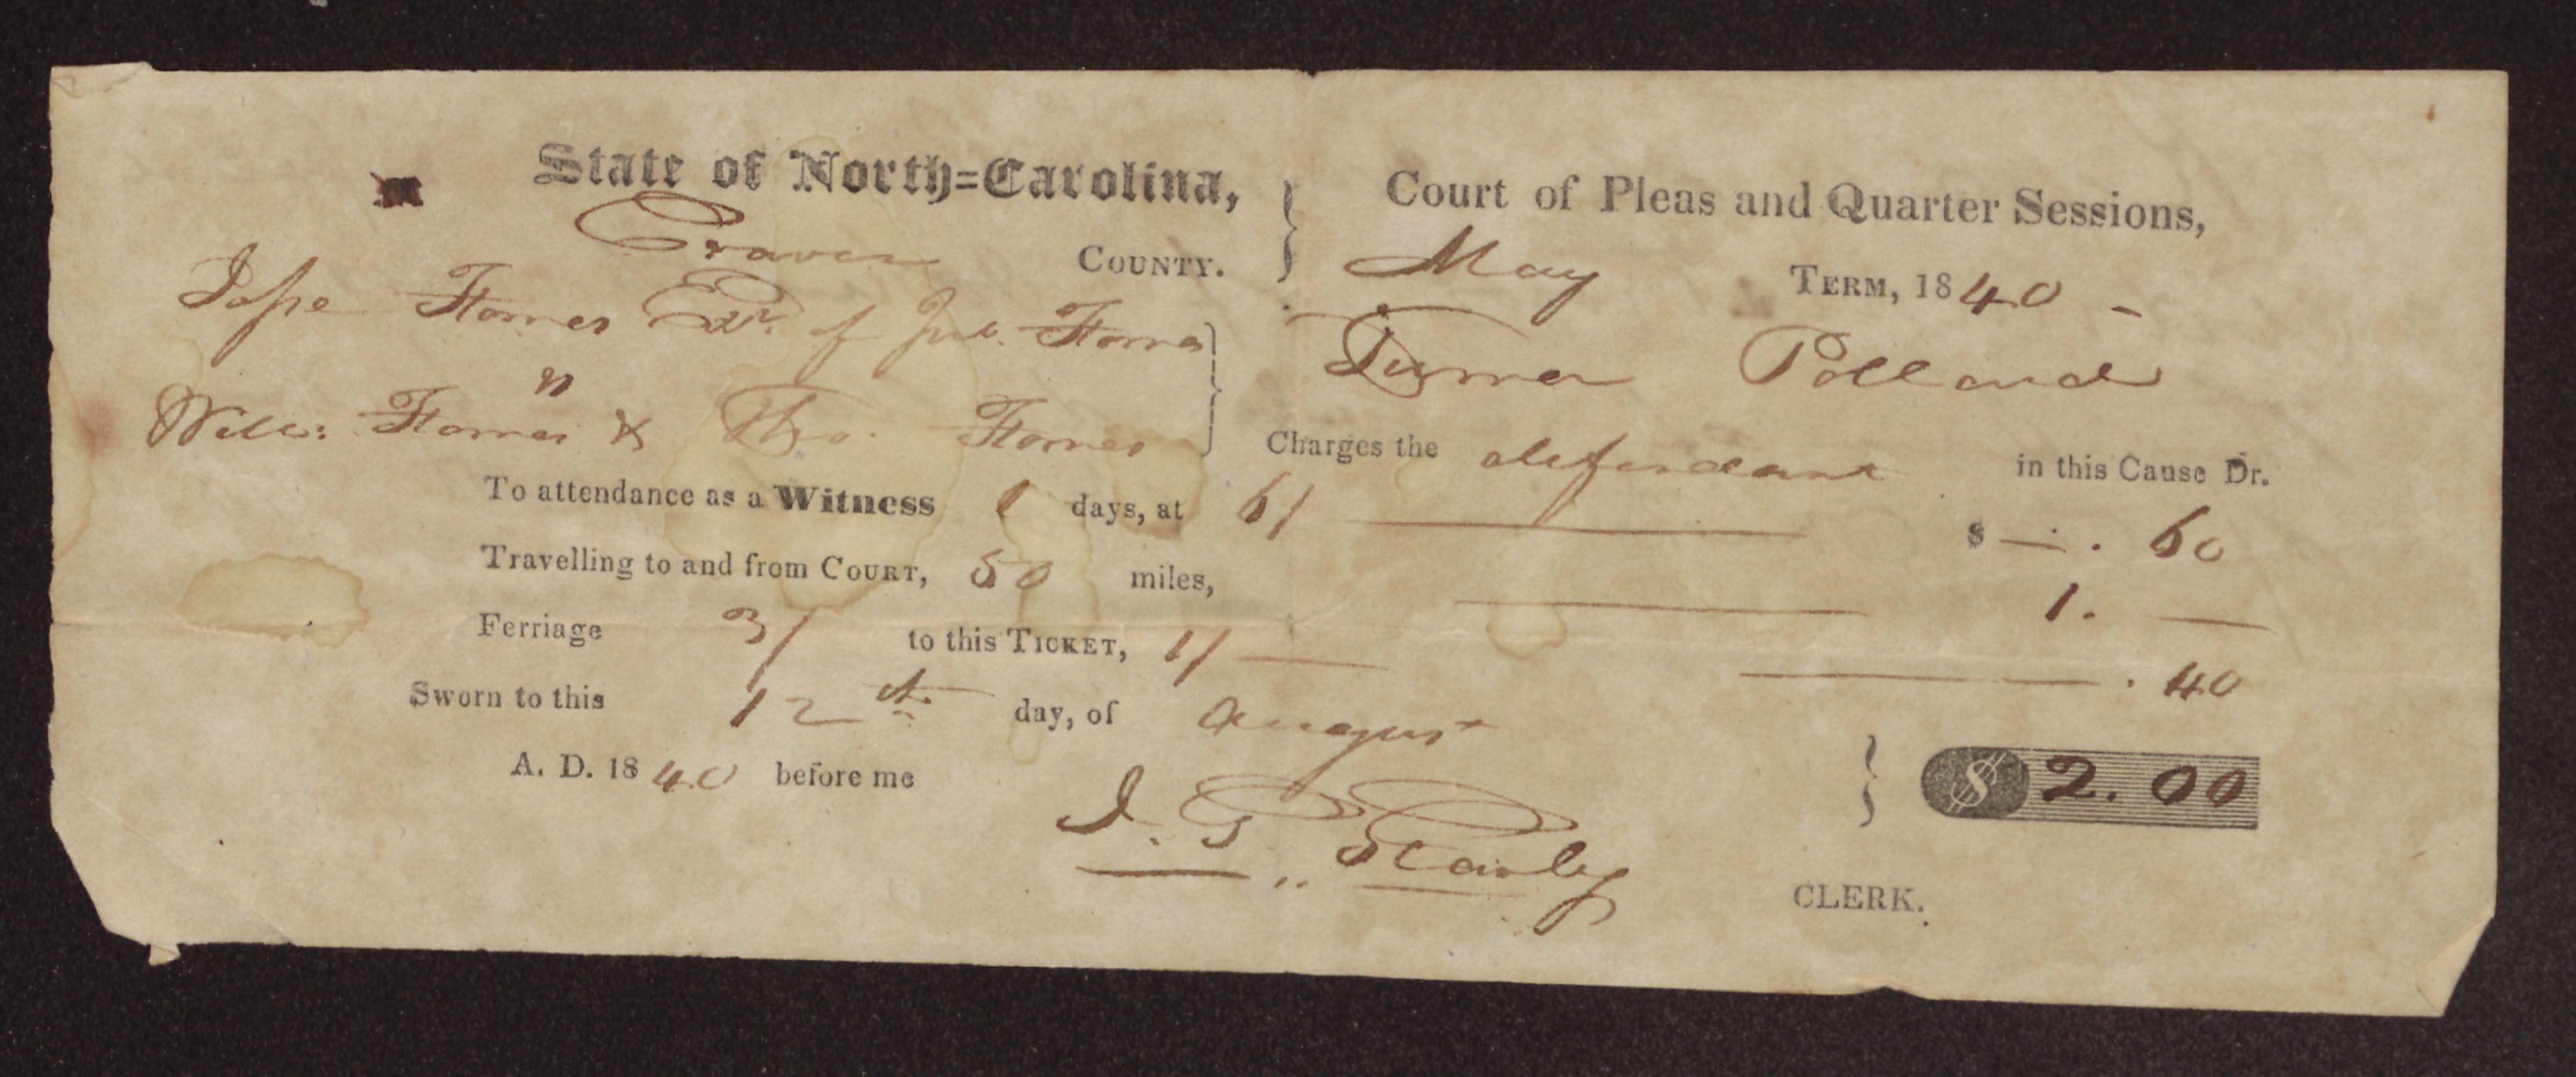 State of North=Carolina,
Craven COUNTY.
Court of Pleas and Quarter Sessions,
May TERM, 1840 -
Jesse Fornes Exr. of Jno. Fornes
vs
Will: Fornes & Tho. Fornes
Turner Pollard
Charges the defendant in this Cause Dr.
To attendance as a Witness 1 days, at 6/ $ — . 60
Travelling to and from COURT, 50 miles, 1. —
Ferriage 3/ to this TICKET, 1/ . 40
Sworn to this 12th day, of August
A. D. 1840 before me
$ 2.00
J. G. Stanly
CLERK.